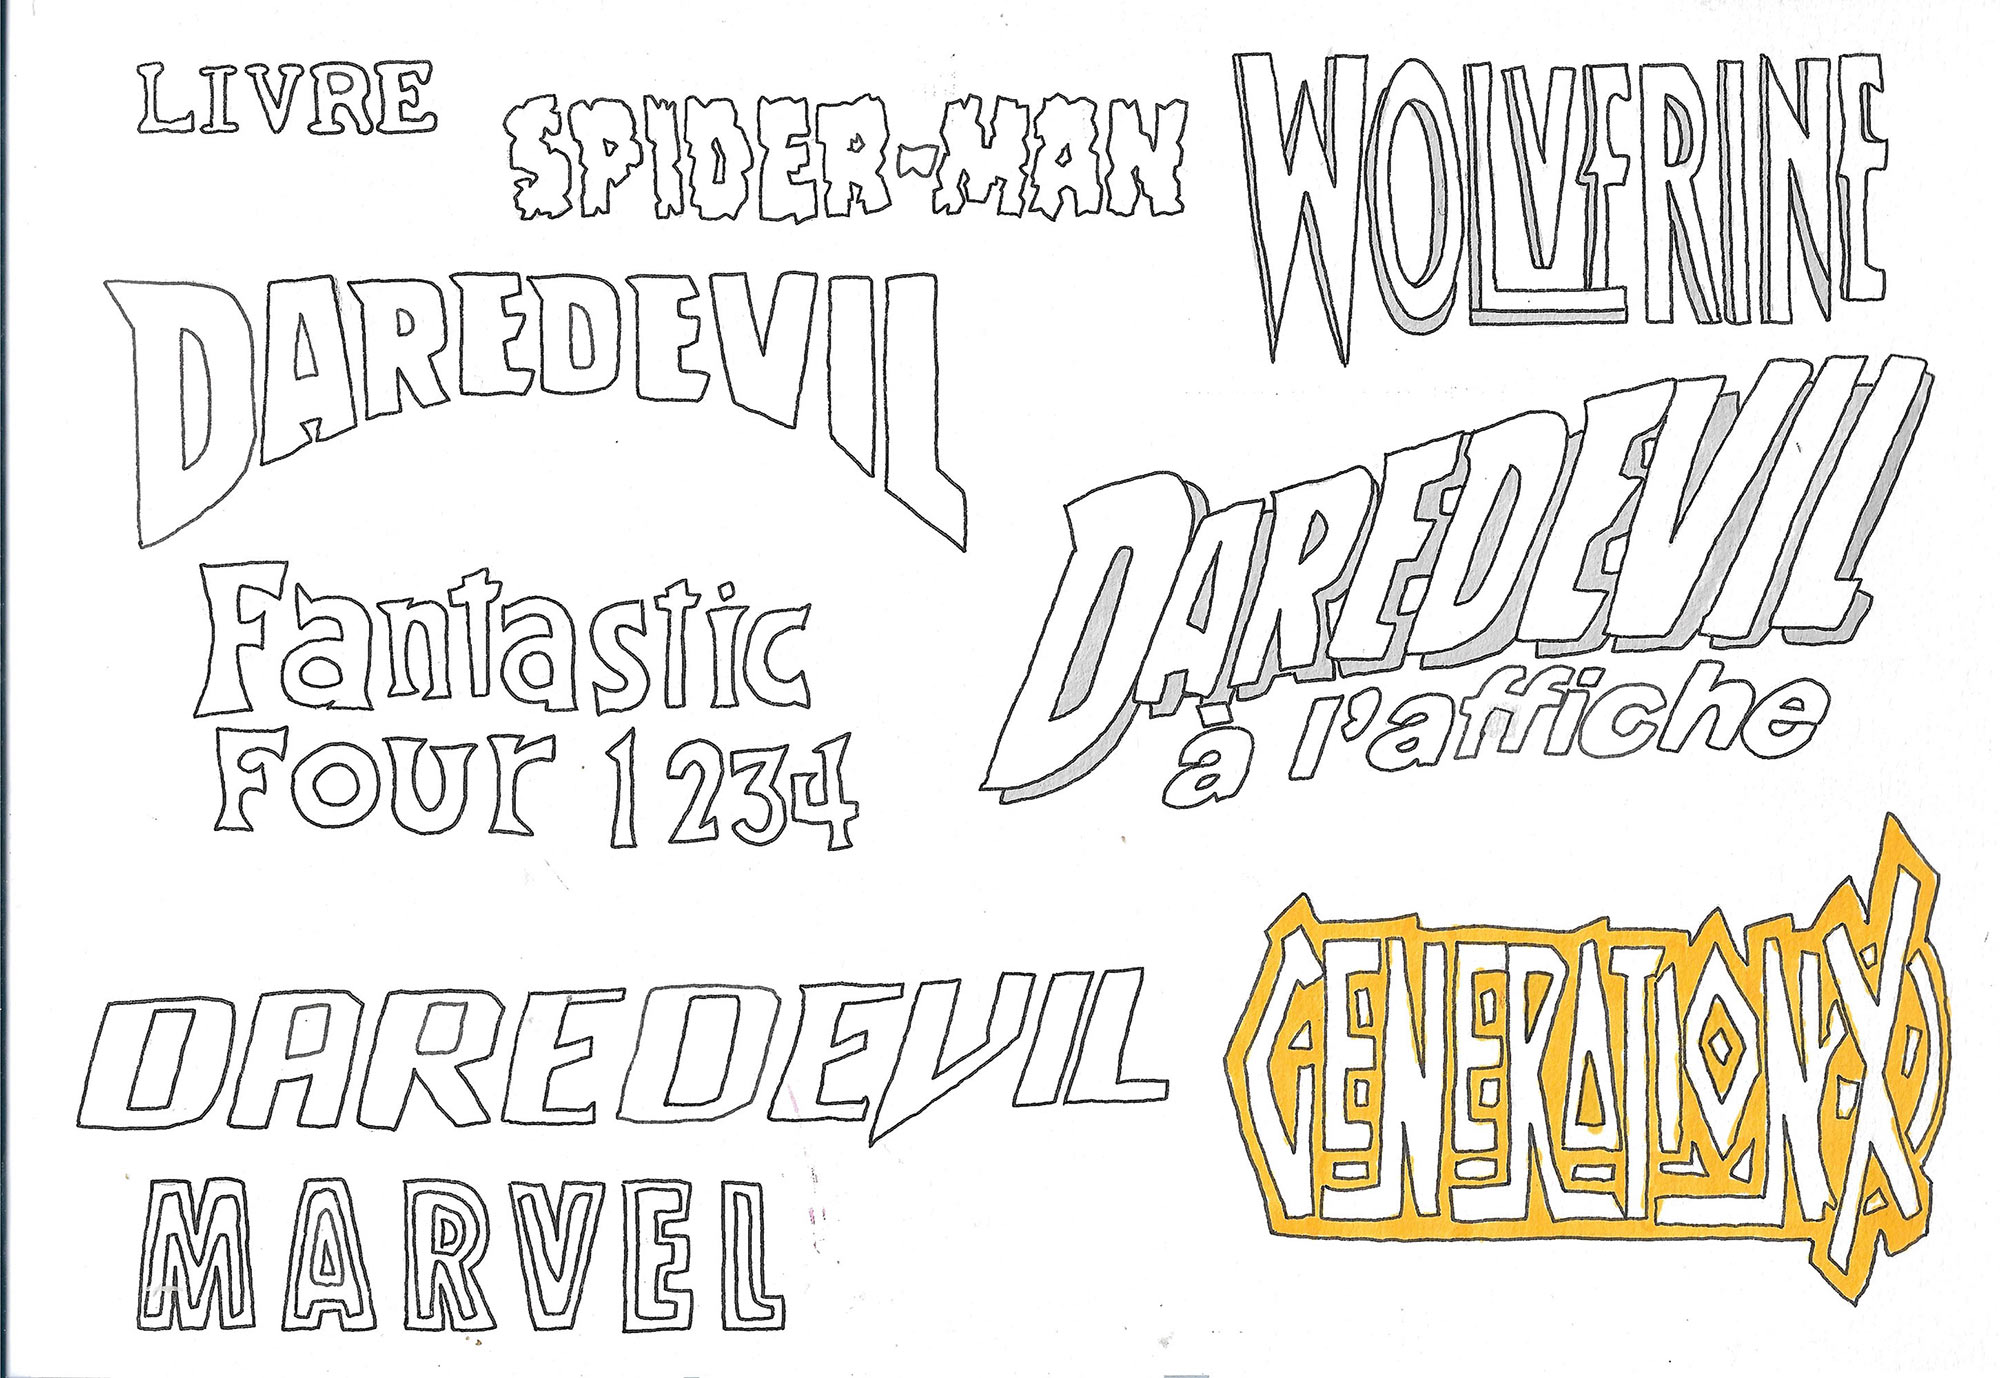 LIVRE
SPIDER-MAN
WOLVERINE
DAREDEVIL
DAREDEVIL
à l'affiche
Fantastic
Four 1234
GENERATION X
DAREDEVIL
MARVEL